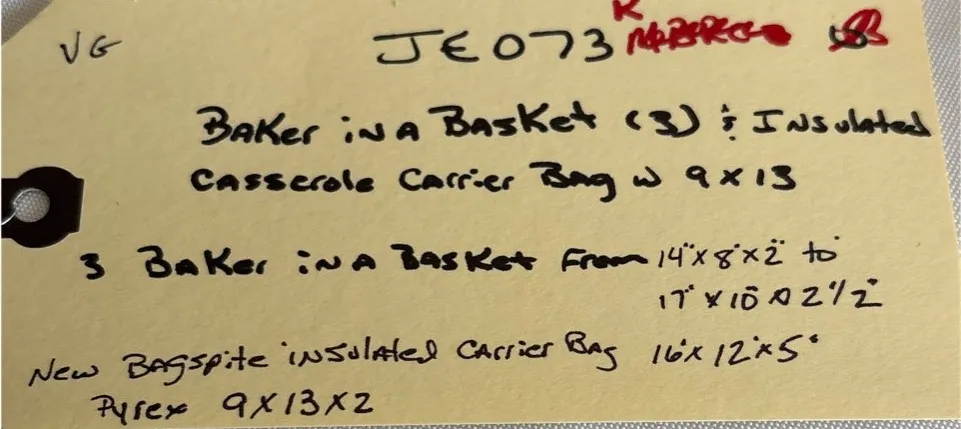 VG JE073 K
BAKer iN A BASKet (3) & INSulated
CASSerole CArrier BAg w 9x13
3 BAKer iN A BASKet From 14"x8"x2" to
17"x10"x2 1/2"
New BAgspite iNSulAted CArrier BAg 16"x12"x5"
Pyrex 9x13x2